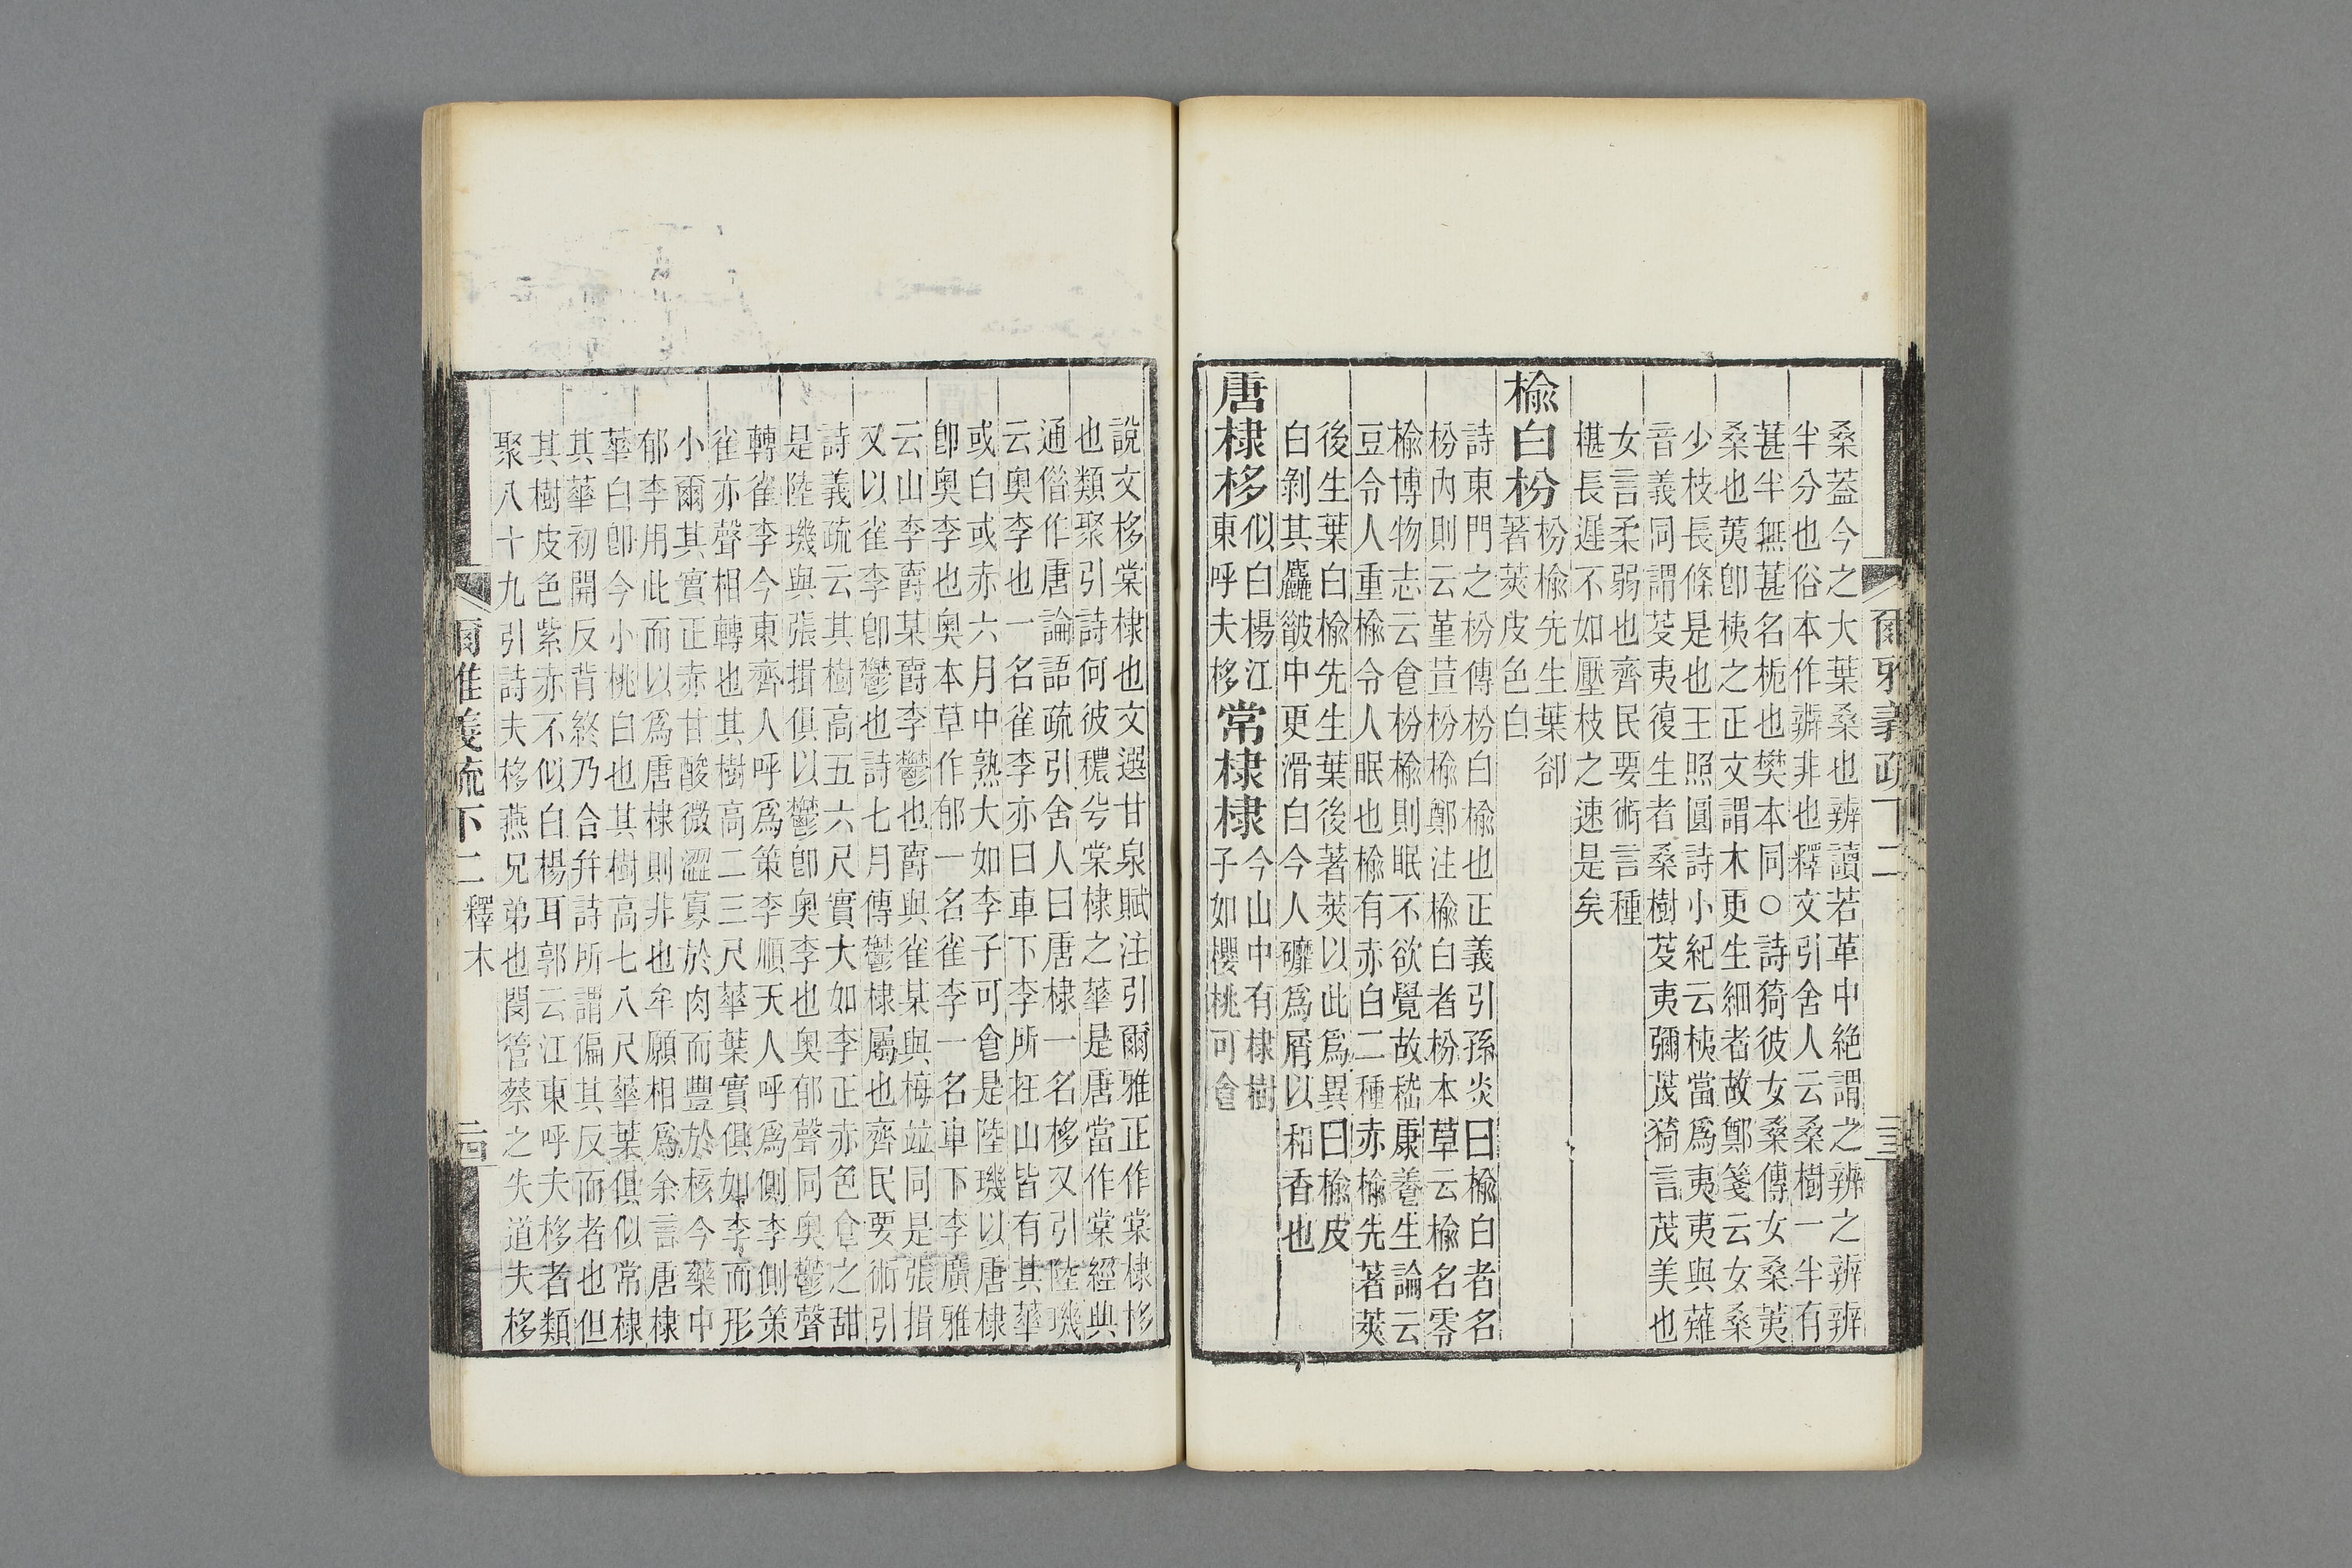 爾雅義疏下二
二三
桑葢今之大葉桑也辨讀若革中絶謂之辨之辨辨
半分也俗本作辧非也釋文引舍人云桑樹一半有
葚半無葚名梔也樊本同○詩猗彼女桑傳女桑荑
桑也荑卽桋之正文謂木更生細者故鄭箋云女桑
少枝長條是也王照圓詩小紀云桋當爲夷夷與薙
音義同謂芟夷復生者桑樹芟夷彌茂猗言茂美也
女言柔弱也齊民要術言種
椹長遲不如壓枝之速是矣
榆白枌
枌榆先生葉卻
著莢皮色白
詩東門之枌傳枌白榆也正義引孫炎曰榆白者名
枌內則云堇荁枌榆鄭注榆白者枌本草云榆名零
榆博物志云食枌榆則眠不欲覺故嵇康養生論云
豆令人重榆令人眠也榆有赤白二種赤榆先著莢
後生葉白榆先生葉後著莢以此爲異曰榆皮
白剝其麤皵中更滑白今人礳爲屑以和香也
唐棣栘
似白楊江
東呼夫栘
常棣棣
今山中有棣樹
子如櫻桃可食
說文栘棠棣也文選甘泉賦注引爾雅正作棠棣栘
也類聚引詩何彼穠兮棠棣之華是唐當作棠經典
通偕作唐論語疏引舍人曰唐棣一名栘又引陸璣
云奧李也一名雀李亦曰車下李所在山皆有其華
或白或赤六月中熟大如李子可食是陸璣以唐棣
卽奧李也奧本草作郁一名雀李一名車下李廣雅
云山李爵某爵李鬱也爵與雀某與梅竝同是張揖
又以雀李卽鬱也詩七月傳鬱棣屬也齊民要術引
詩義疏云其樹高五六尺實大如李正赤色食之甜
是陸璣與張揖俱以鬱卽奧李也奧郁聲同奧鬱聲
轉雀李今東齊人呼爲策李順天人呼爲側李側策
雀亦聲相轉也其樹高二三尺華葉實俱如李而形
小爾其實正赤甘酸微澀寡於肉而豐於核今藥中
郁李用此而以爲唐棣則非也牟願相爲余言唐棣
華白卽今小桃白也其樹高七八尺華葉俱似常棣
其華初開反背終乃合幷詩所謂偏其反而者也但
其樹皮色紫赤不似白楊耳郭云江東呼夫栘者類
聚八十九引詩夫栘燕兄弟也閔管蔡之失道夫栘
爾雅義疏下二 釋木
二四